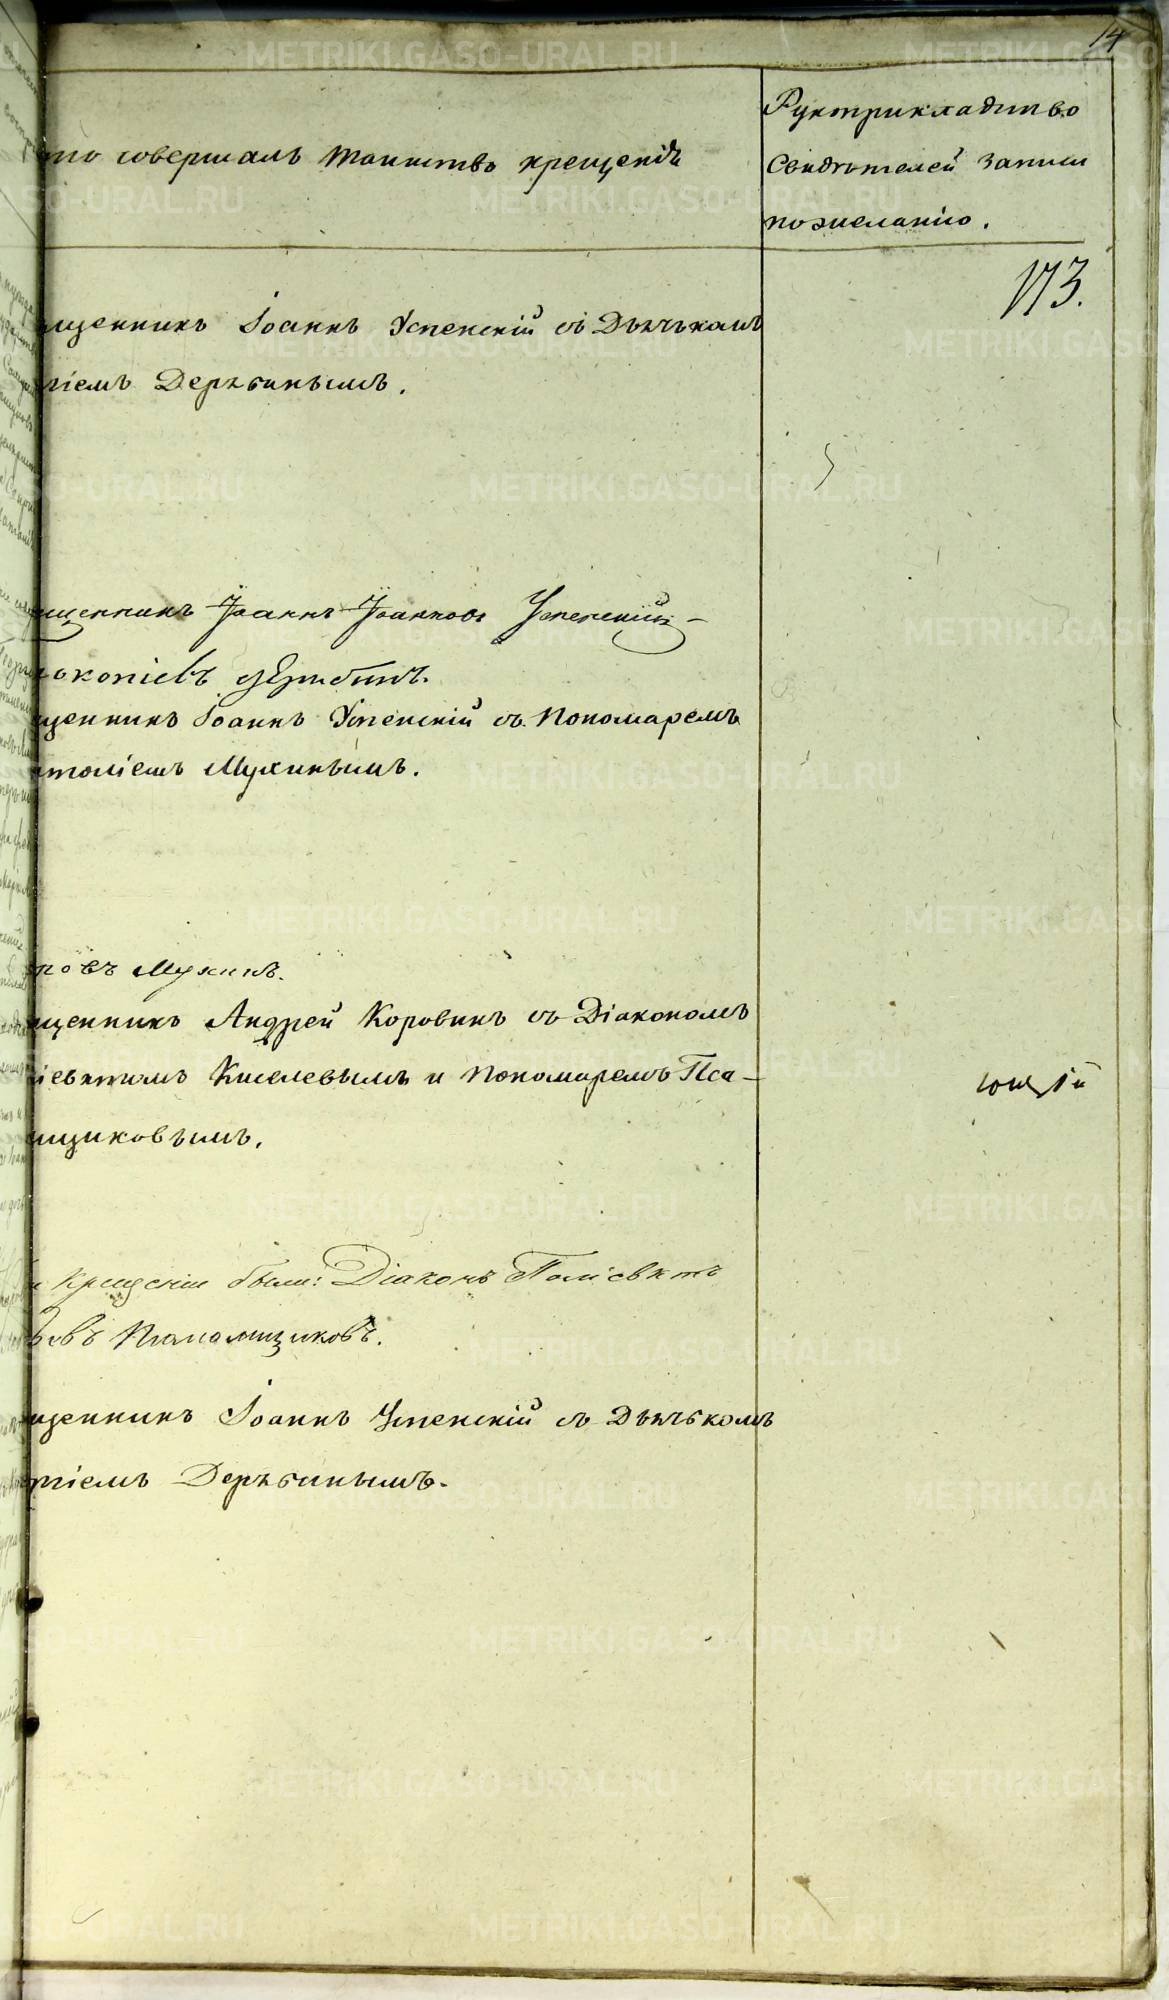 14
то совершалъ таинство крещенія
Рукоприкладство
свидѣтелей записи
по желанію.
173.
щенникъ Іоаннъ Успенскій съ Дьячькомъ
гіемъ Дерябинымъ.
щенникъ Іоаннъ Іоанновъ Успенскій
окопіевъ Дерябинъ.
щенникъ Іоаннъ Успенскій съ Пономаремъ
толіемъ Мухинымъ.
повъ Мухинъ.
щенникъ Андрей Коровинъ съ Діакономъ
іевктомъ Киселевымъ и Пономаремъ Пса-
ющій
мщиковымъ.
и крещеніи были: Діаконъ Поліевктъ
овъ Псаломщиковъ.
щенникъ Іоаннъ Успенскій съ Дьячькомъ
гіемъ Дерябинымъ.
METRIKI.GASO-URAL.RU